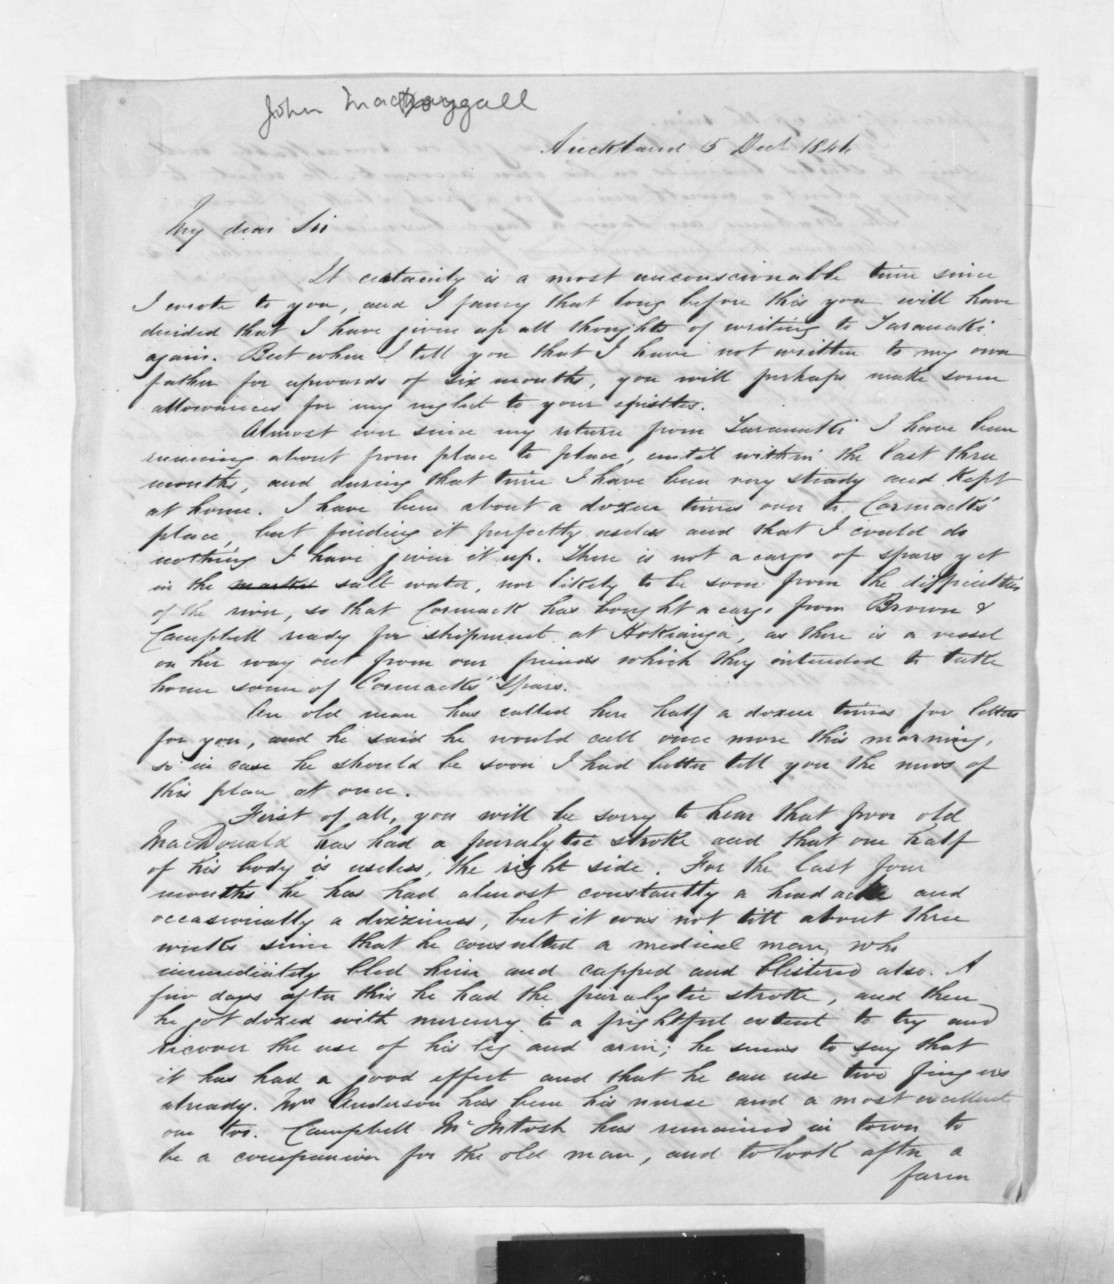 John MacDougall
Auckland 5 Dect 1844
My dear Sir
It certainly is a most unconscionable time since
I wrote to you, and I fancy that long before this you will have
decided that I have given up all thoughts of writing to Taranaki
again. But when I tell you that I have not written to my own
father for upwards of six months, you will perhaps make some
allowances for my neglect to your epistles.
Almost ever since my return from Taranaki I have been
running about from place to place, until within the last three
months, and during that time I have been very steady and kept
at home. I have been about a dozen times over to Cormack's
place, but finding it perfectly useless and that I could do
nothing I have given it up. There is not a cargo of spars yet
in the salt water, nor likely to be soon from the difficulties
of the river, so that Cormack has bought a cargo from Brown &
Campbell ready for shipment at Hokianga, as there is a vessel
on her way out from our friends which they intended to take
home some of Cormack's spars.
An old man has called here half a dozen times for letters
for you, and he said he would call once more this morning,
so in case he should be soon I had better tell you the news of
this place at once.
First of all, you will be sorry to hear that poor old
MacDonald has had a paralytic stroke and that one half
of his body is useless, the right side. For the last four
months he has had almost constantly a head ache and
occasionally a dizziness, but it was not till about three
weeks since that he consulted a medical man, who
immediately bled him and cupped and blistered also. A
few days after this he had the paralytic stroke, and then
he got dozed with mercury to a frightful extent to try and
recover the use of his leg and arm; he seems to say that
it has had a good effect and that he can use two fingers
already. Mrs Anderson has been his nurse and a most excellent
one too. Campbell McIntosh has remained in town to
be a companion for the old man, and to look after a
farm